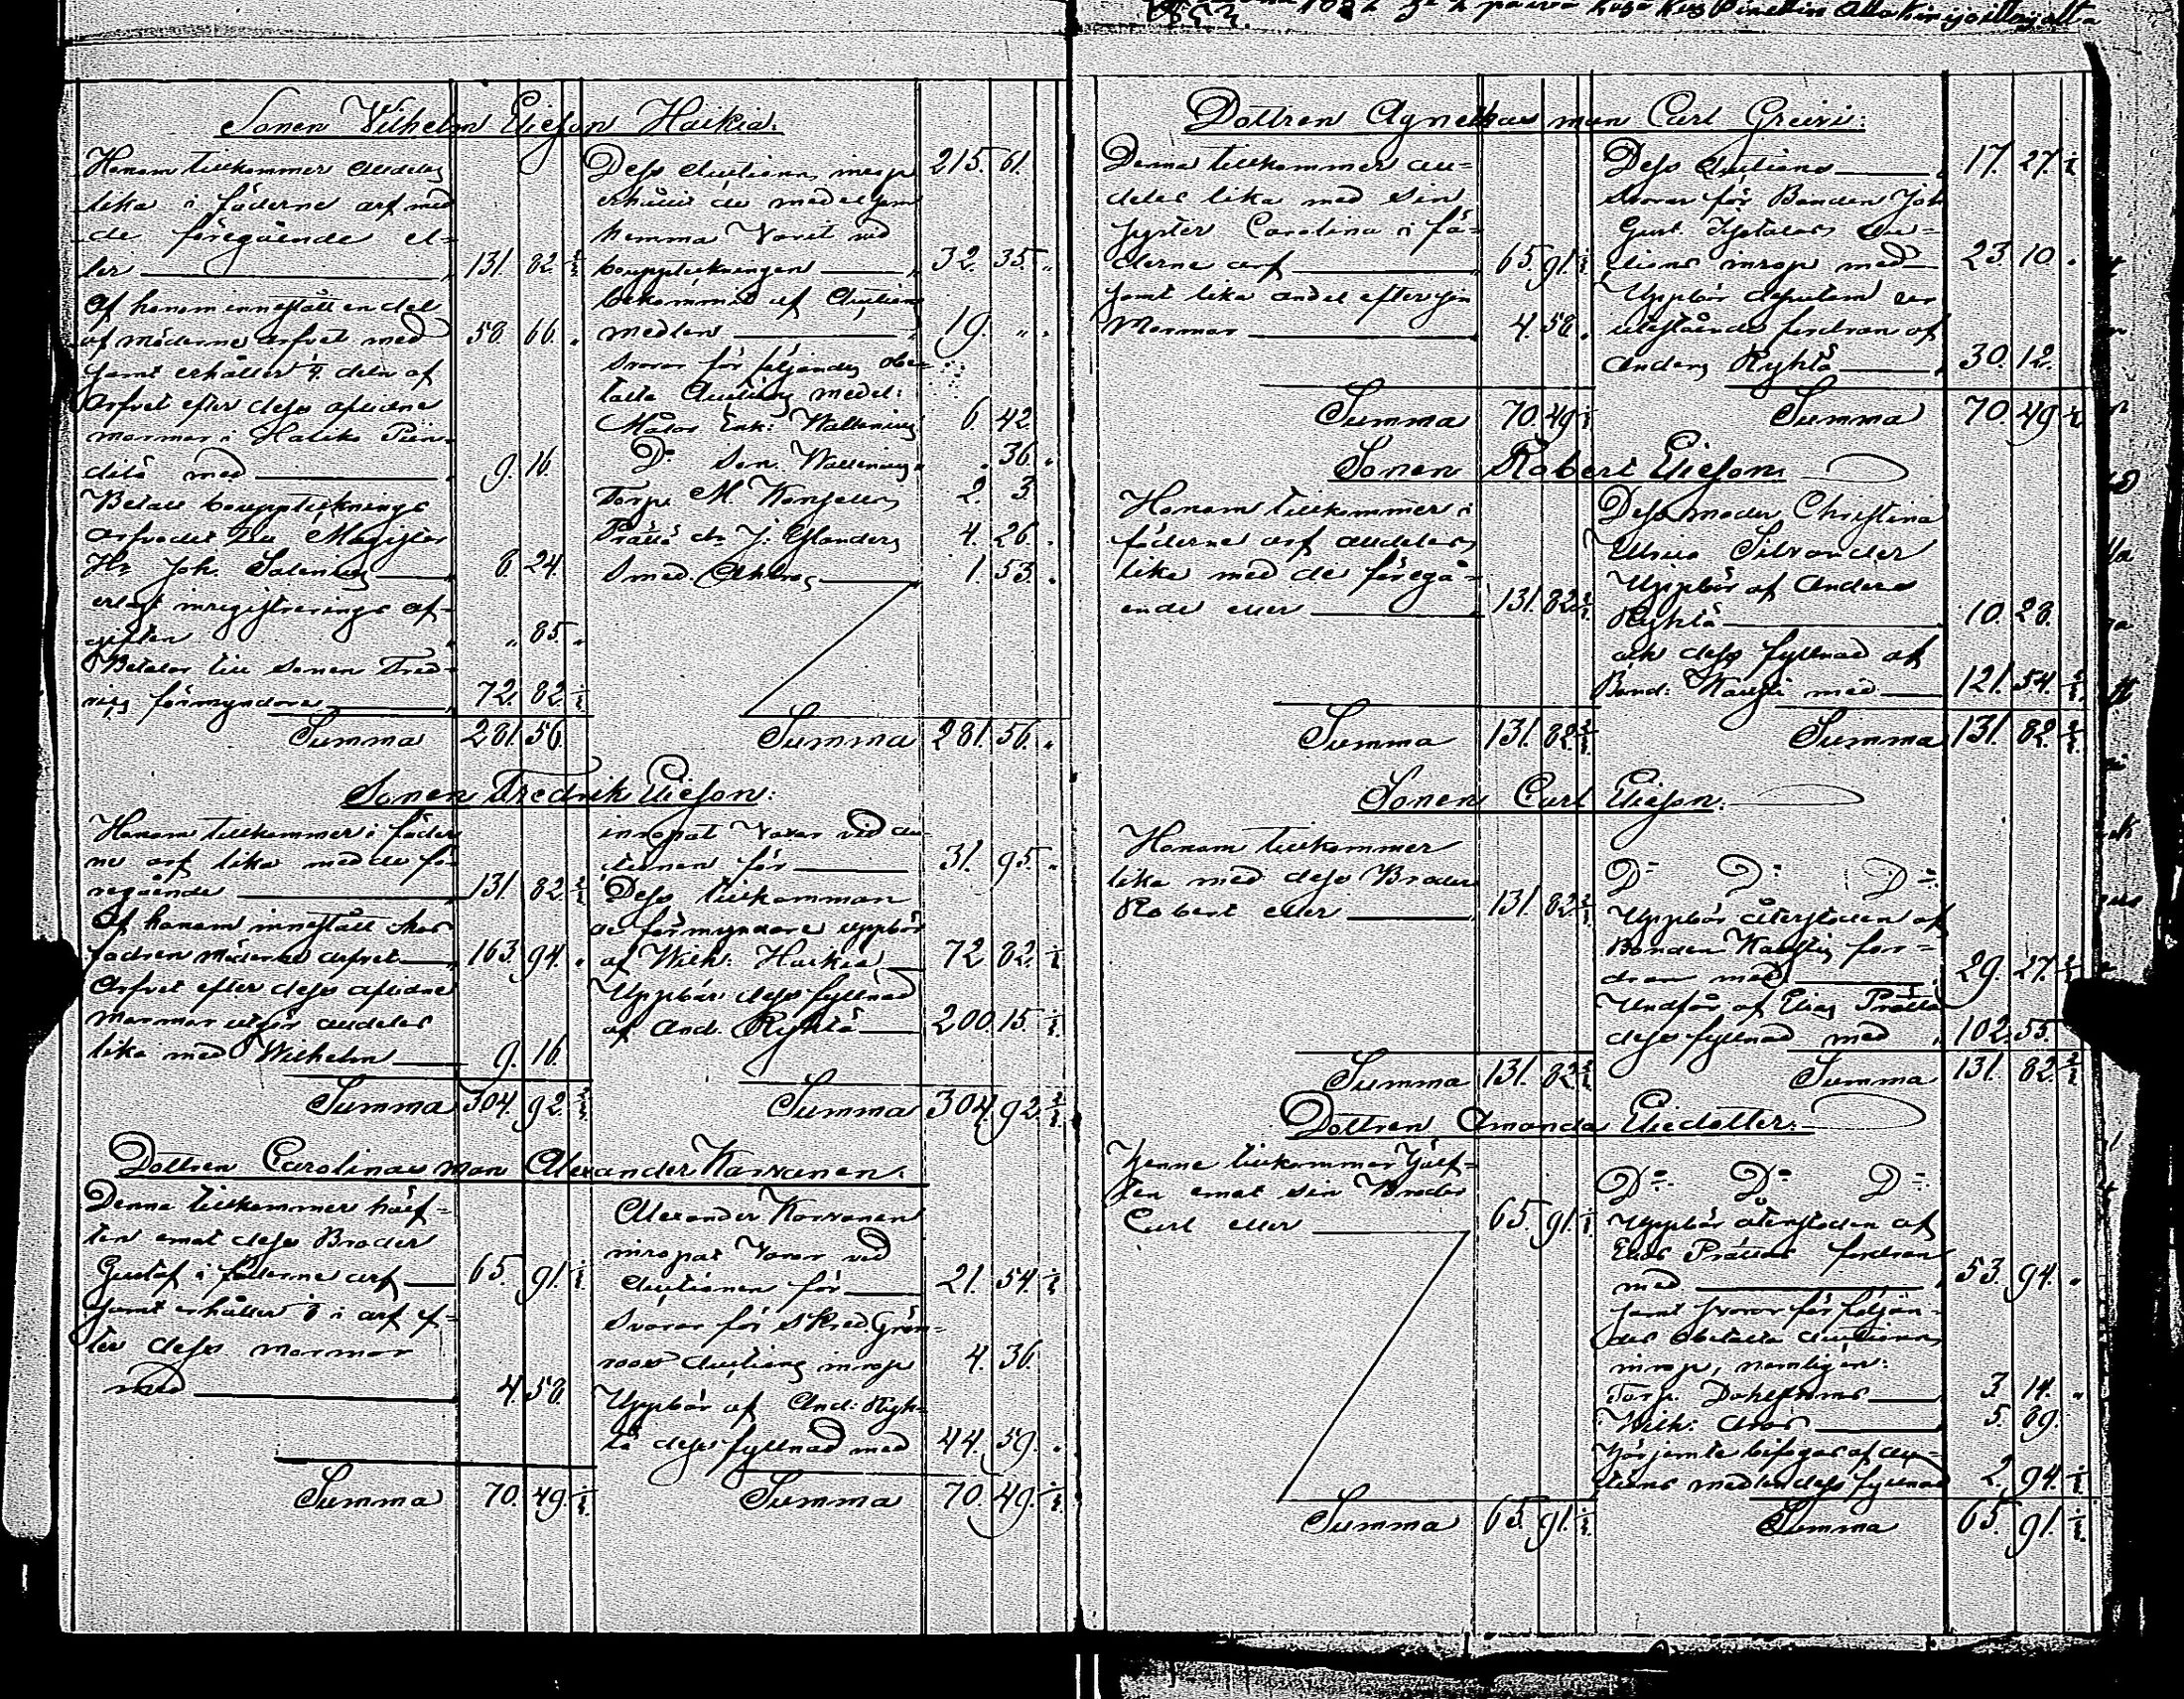 Sonen Vilhelm Eliefson Haikia.
Honom tillkommer alldeles
lika i fäderne arf med
de föregående el-
ler 131. 82. 2/3
Af honom innestått en del
af möderne arfvet med 58. 66.
samt erhåller ¼ deln af
Arfvet efter dess aflidne
mormor i Haliko
med 9. 16.
Betalt bouppteknings
arfvodet till Magister
Hr Joh. Salenius 8. 24.
erlagt inregistrerings af-
giften " 85.
Betalar till sonen Fred-
riks förmyndare 72. 82.
Summa 281. 56.
Dess Auctions inrop 215. 61.
hemma Varit vid
bouppteckningen 32. 35.
bekommit af Auctions
medlen 19. " .
svarar för följande obe-
talte Auctions medel:
Enk: Wallenius 6. 42.
Do son. Wallenius . 36.
Torp. M. 2. 3
Prättä 4. 26.
Smed 1. 53.
Summa 281. 56.
Sonen Fredrik Eliefson:
Honom tillkommer i fäder
ne arf lika med de fö-
regående 131. 82. 2/3
Af honom innestått hos
fadren möderne arfvet 163. 94.
Arfvet efter dess aflidne
Mormor utgör alldeles
lika med Wilhelm 9. 16.
Summa 304. 92. 2/3
inropat Varor vid au-
ctionen för 31. 95.
Dess tillkomman
de förmyndare uppbär
af Wilh: Haikia 72 82.
Uppbär dess fyllnad
af And. Ryhtä 200. 15.
Summa 304. 92.
Dottren Carolinas man Alexander Karvanen.
Denne tillkommer hälf-
ten emot dess Broder
Gustaf i fäderne arf 65. 91.
samt erhåller ⅛ i arf ef-
ter dess mormor
med 4. 58.
Summa 70. 49.
Alexander Karvanen
inropat Varor vid
Auctionen för 21. 54.
Svarar för Skred. Grön-
roos Auctions inrop 4. 36.
Uppbär af And: Ryh-
tä dess fyllnad med 44. 59.
Summa 70. 49.
Dottren Agnethas man Carl Greivi:
Denna tillkommer all-
deles lika med sin
syster Carolina i fä-
derne arf 65. 91.
samt lika andel efter sin
Mormor 4. 58.
Summa 70. 49
Dess Auctions 17. 27.
svarar för Bonden Joh
Gust. Auc-
tions inrop med 23 10.
Uppbär dessutom en
utestående fordran af
Anders Ryhtä 30. 12.
Summa 70. 49
Sonen Robert Eliefson.
Honom tillkommer i
fäderne arf alldeles
lika med de föregå-
ende eller 131. 82 2/3
Summa 131. 82 2/3
Dess moder Christina
Ulrica Silvander
Uppbär af Anders
Ryhtä 10. 28.
och dess fyllnad af
Bond: med 121. 54. 2/3
Summa 131. 82. 2/3
Sonen Carl Eliefson.
Honom tillkommer
lika med dess Broder
Robert eller 131. 82 2/3
Summa 131. 82 2/3
Do Do Do
Uppbär återstoden af
Bonden for-
dran med 29. 27. 2/3
Undfår af Elias Prättä
dess fyllnad med 102. 55.
Summa 131. 82. 2/3
Dottren Amanda Eliedotter.
Henne tillkommer hälf-
ten emot sin Broder
Carl eller 65. 91.
Summa 65. 91.
Do Do Do
Uppbär återstoden af
Elias Prättäs fordran
med 53. 94.
samt svarar för följan-
des obetalta Auctions
inrop, nemligen:
Torp. Dahlströms 3. 14.
Wilh: 5. 89.
Härjemte bifogas af auc-
tions medlen dess fyllnad 2. 94.
Summa 65. 91.